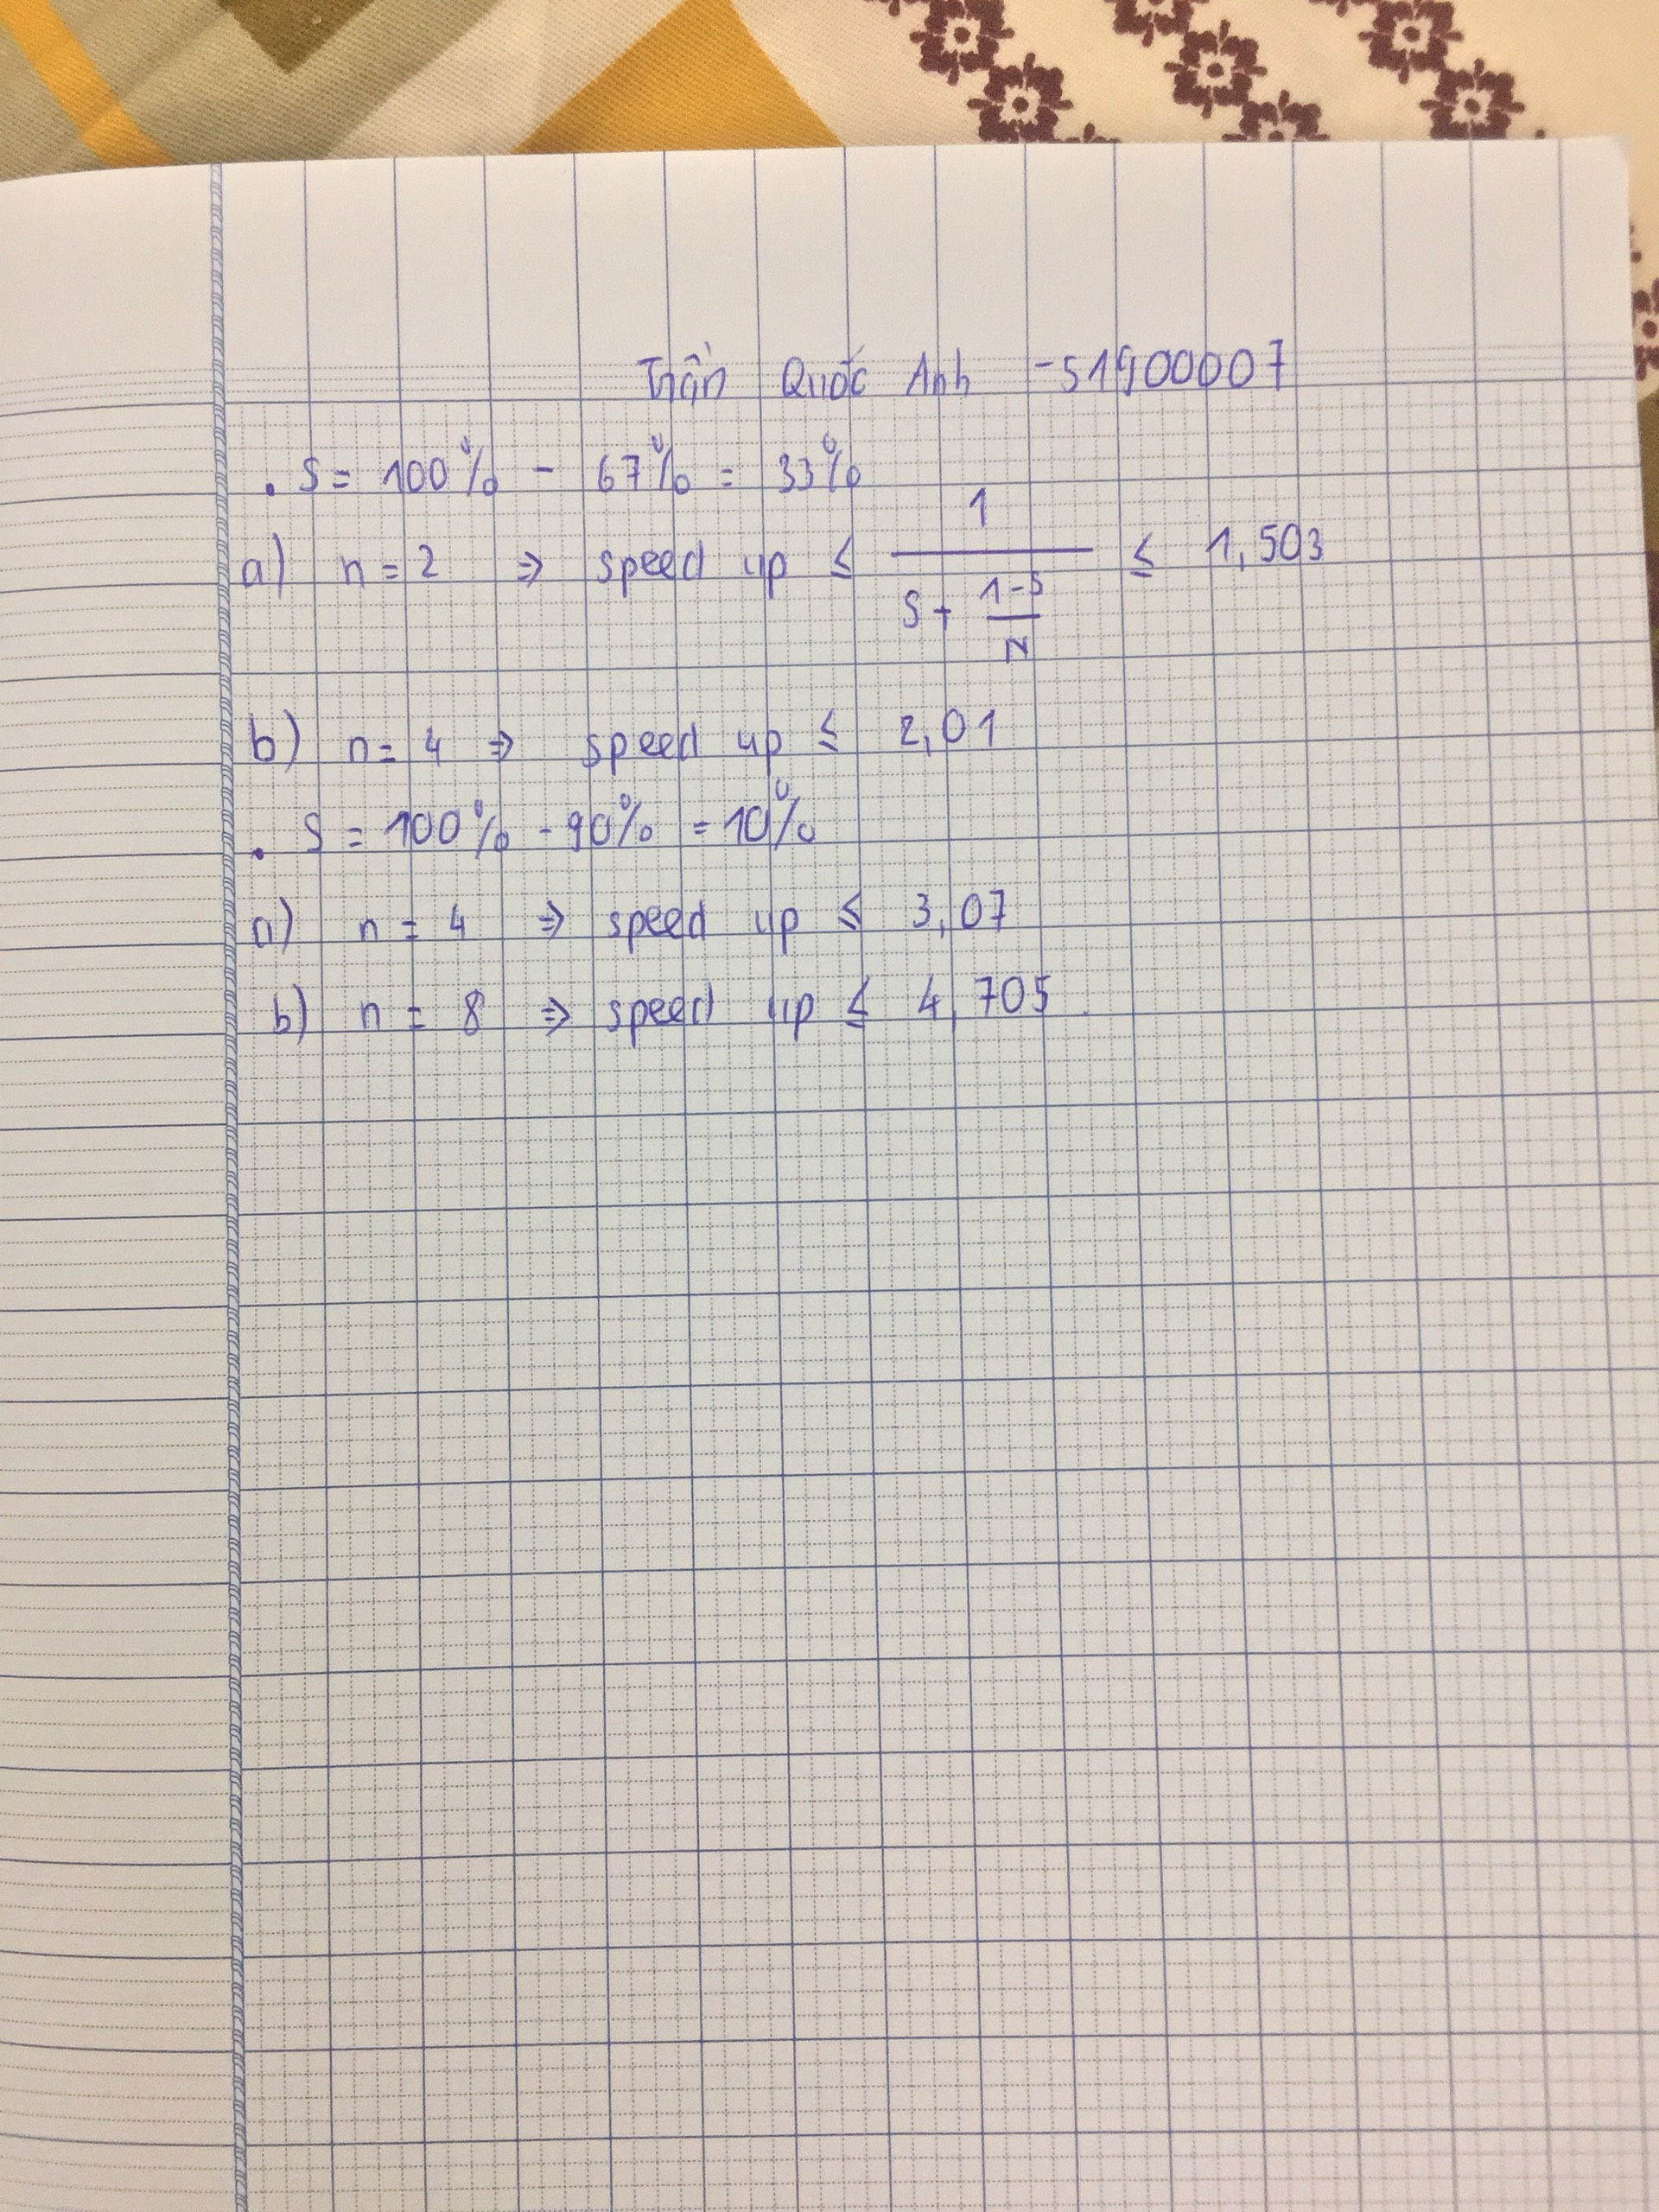 Trần Quốc Anh - 51900007
. S = 100% - 67% = 33%
a) n = 2 => speed up ≤ 1 / (S + (1-S)/N) ≤ 1,503
b) n = 4 => speed up ≤ 2,01
. S = 100% - 90% = 10%
a) n = 4 => speed up ≤ 3,07
b) n = 8 => speed up ≤ 4,705